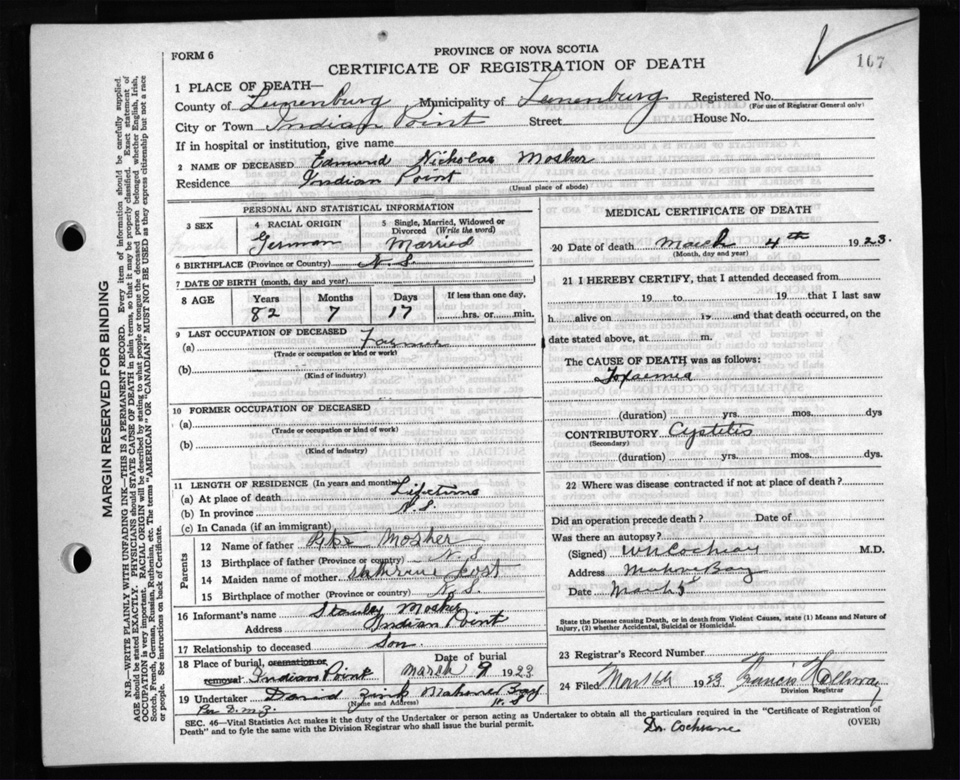 FORM 6
PROVINCE OF NOVA SCOTIA
167
CERTIFICATE OF REGISTRATION OF DEATH
1 PLACE OF DEATH—
County of Lunenburg Municipality of Lunenburg Registered No.
(For use of Registrar General only)
City or Town Indian Point Street House No.
If in hospital or institution, give name
2 NAME OF DECEASED Edmund Nicholas Mosher
Residence Indian Point
(Usual place of abode)
PERSONAL AND STATISTICAL INFORMATION
3 SEX 4 RACIAL ORIGIN German 5 Single, Married, Widowed or Divorced (Write the word) Married
6 BIRTHPLACE (Province or Country) N.S.
7 DATE OF BIRTH (month, day and year)
8 AGE Years 82 Months 7 Days 17 If less than one day, hrs. or min.
9 LAST OCCUPATION OF DECEASED
(a) Farmer
(Trade or occupation or kind or work)
(b)
(Kind of industry)
10 FORMER OCCUPATION OF DECEASED
(a)
(Trade or occupation or kind of work)
(b)
(Kind of industry)
11 LENGTH OF RESIDENCE (In years and months)
(a) At place of death Lifetime
(b) In province N.S.
(c) In Canada (if an immigrant)
Parents
12 Name of father Mosher
13 Birthplace of father (Province or country) N.S
14 Maiden name of mother
15 Birthplace of mother (Province or country) N.S.
16 Informant's name Stanley Mosher
Address Indian Point
17 Relationship to deceased Son.
18 Place of burial, cremation or removal Indian Point Date of burial March 9 1923
19 Undertaker David Zink Mahone Bay N.S
(Name and Address)
MEDICAL CERTIFICATE OF DEATH
20 Date of death March 4th 1923.
(Month, day and year)
21 I HEREBY CERTIFY, that I attended deceased from
19 to 19 that I last saw
h alive on 19 and that death occurred, on
date stated above, at m.
The CAUSE OF DEATH was as follows:
Toxaemia
(duration) yrs. mos. dys
CONTRIBUTORY Cystitis
(Secondary)
(duration) yrs. mos. dys.
22 Where was disease contracted if not at place of death?
Did an operation precede death? Date of
Was there an autopsy?
(Signed) W.N. Cochran M.D.
Address Mahone Bay
Date March 5
State the Disease causing Death, or in death from Violent Causes, state (1) Means and Nature of Injury, (2) whether Accidental, Suicidal or Homicidal.
23 Registrar's Record Number
24 Filed 1923 Francis Hollway
Division Registrar
SEC. 46—Vital Statistics Act makes it the duty of the Undertaker or person acting as Undertaker to obtain all the particulars required in the "Certificate of Registration of
Death" and to fyle the same with the Division Registrar who shall issue the burial permit.
(OVER)
Dr. Cochrane
MARGIN RESERVED FOR BINDING
N.B.—WRITE PLAINLY WITH UNFADING INK—THIS IS A PERMANENT RECORD. Every item of information should be carefully supplied.
AGE should be stated EXACTLY. PHYSICIANS should STATE CAUSE OF DEATH in plain terms, so that it may be properly classified. Exact statement of
OCCUPATION is very important. RACIAL ORIGIN will be described by stating to what people or tongue the deceased person belonged whether English, Irish,
Scotch, French, German, Russian, Ruthenian, etc. The terms "AMERICAN" or "CANADIAN" MUST NOT BE USED as they express citizenship but not a race
or people. See instructions on back of Certificate.